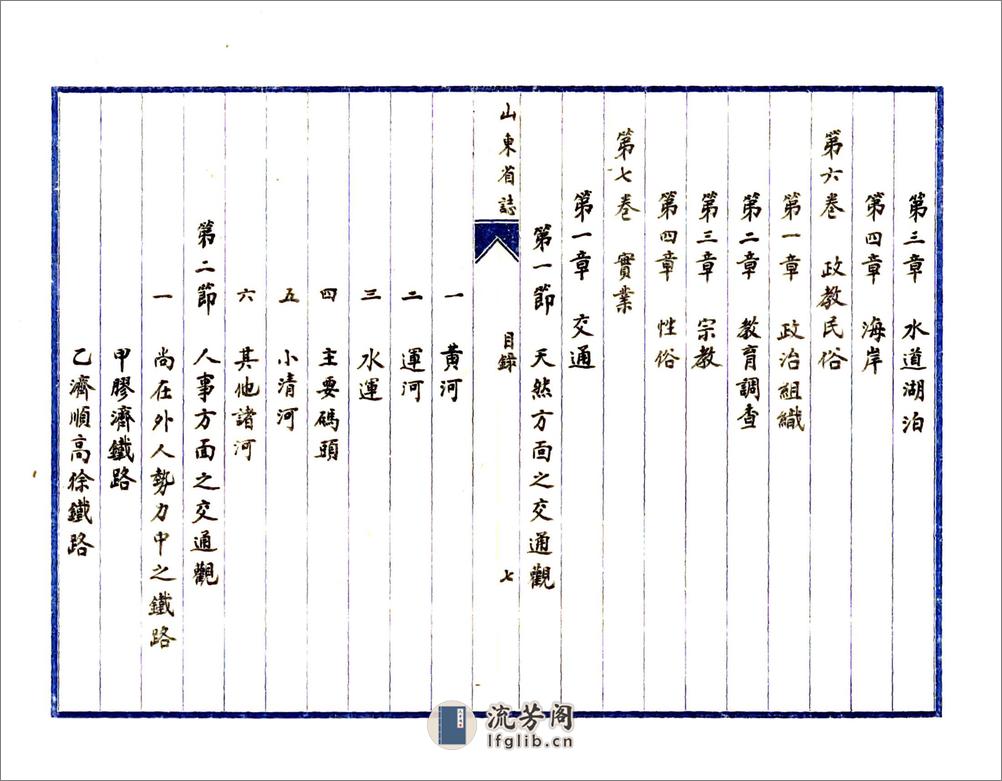 第三章　水道湖泊
第四章　海岸
第六卷　政教民俗
第一章　政治組織
第二章　教育調查
第三章　宗教
第四章　性俗
第七卷　實業
第一章　交通
第一節　天然方面之交通觀
山東省誌　目錄　七
一　黃河
二　運河
三　水運
四　主要碼頭
五　小清河
六　其他諸河
第二節　人事方面之交通觀
一　尚在外人勢力中之鐵路
甲膠濟鐵路
乙濟順高徐鐵路
流芳阁
lfglib.cn